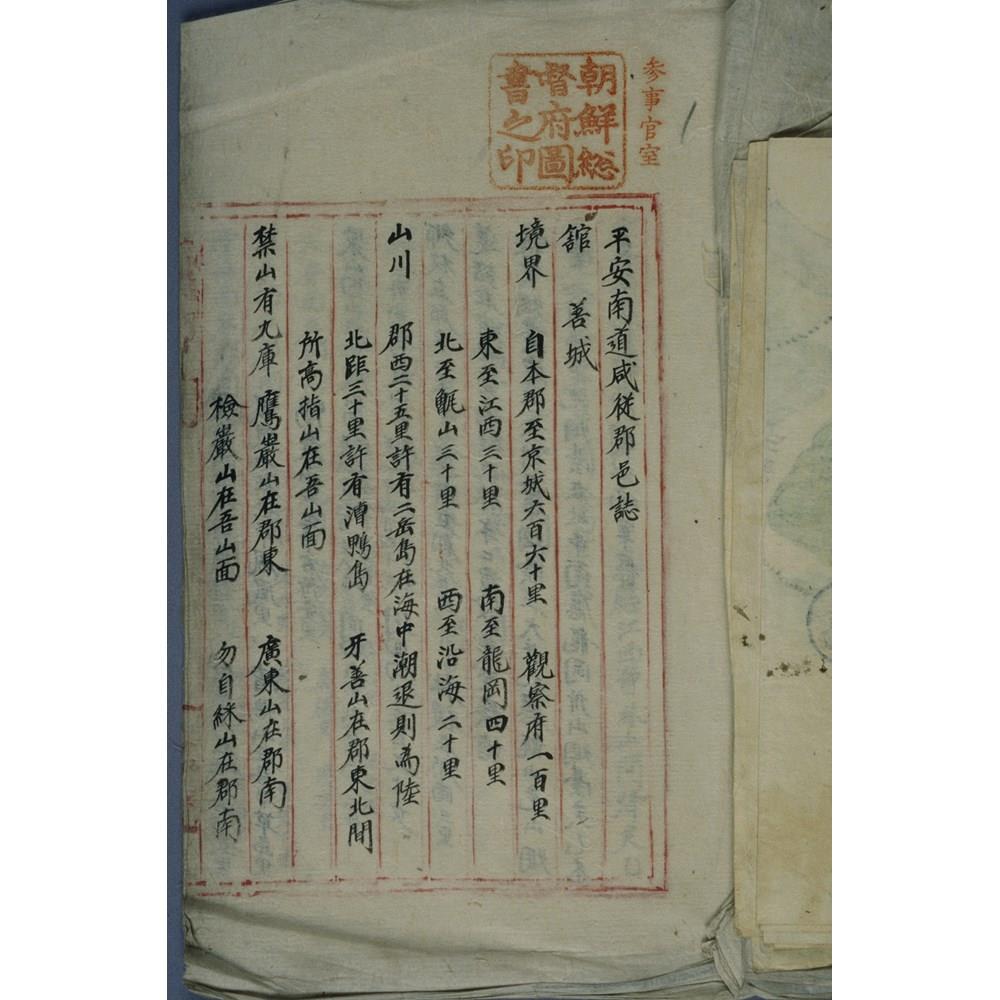 参事官室
朝鮮総
督府圖
書之印
平安南道咸従郡邑誌
舘 善城
境界 自本郡至京城六百六十里 觀察府一百里
東至江西三十里 南至龍岡四十里
北至甑山三十里 西至沿海二十里
山川 郡西二十五里許有二岳島在海中潮退則為陸
北距三十里許有漕鴨島 牙善山在郡東北間
所高指山在吾山面
禁山有九庫 鷹巖山在郡東 廣東山在郡南
檢巖山在吾山面 勿自綵山在郡南